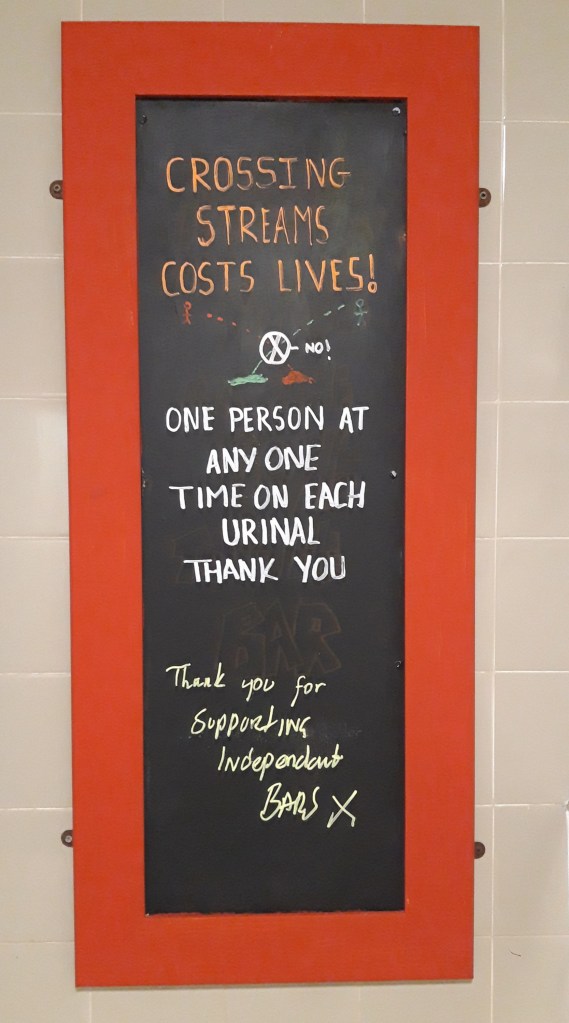 CROSSING
STREAMS
COSTS LIVES!
X - NO!
ONE PERSON AT
ANY ONE
TIME ON EACH
URINAL
THANK YOU
BAR
Thank you for
Supporting
Independant
BARS X